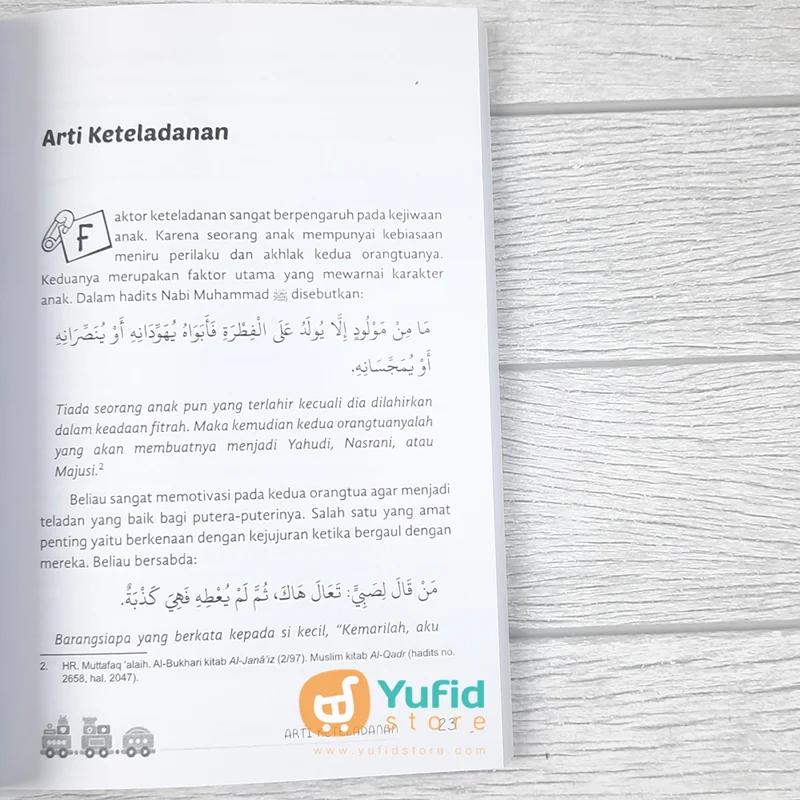 Arti Keteladanan
Faktor keteladanan sangat berpengaruh pada kejiwaan
anak. Karena seorang anak mempunyai kebiasaan
meniru perilaku dan akhlak kedua orangtuanya.
Keduanya merupakan faktor utama yang mewarnai karakter
anak. Dalam hadits Nabi Muhammad ﷺ disebutkan:
مَا مِنْ مَوْلُودٍ إِلَّا يُولَدُ عَلَى الْفِطْرَةِ فَأَبَوَاهُ يُهَوِّدَانِهِ أَوْ يُنَصِّرَانِهِ
أَوْ يُمَجِّسَانِهِ.
Tiada seorang anak pun yang terlahir kecuali dia dilahirkan
dalam keadaan fitrah. Maka kemudian kedua orangtuanyalah
yang akan membuatnya menjadi Yahudi, Nasrani, atau
Majusi.²
Beliau sangat memotivasi pada kedua orangtua agar menjadi
teladan yang baik bagi putera-puterinya. Salah satu yang amat
penting yaitu berkenaan dengan kejujuran ketika bergaul dengan
mereka. Beliau bersabda:
مَنْ قَالَ لِصَبِيٍّ: تَعَالَ هَاكَ، ثُمَّ لَمْ يُعْطِهِ فَهِيَ كَذْبَةٌ.
Barangsiapa yang berkata kepada si kecil, “Kemarilah, aku
2. HR. Muttafaq 'alaih. Al-Bukhari kitab Al-Janâ'iz (2/97). Muslim kitab Al-Qadr (hadits no.
2658, hal. 2047).
ARTI KETELADANAN 23
Yufid
store
www.yufidstore.com